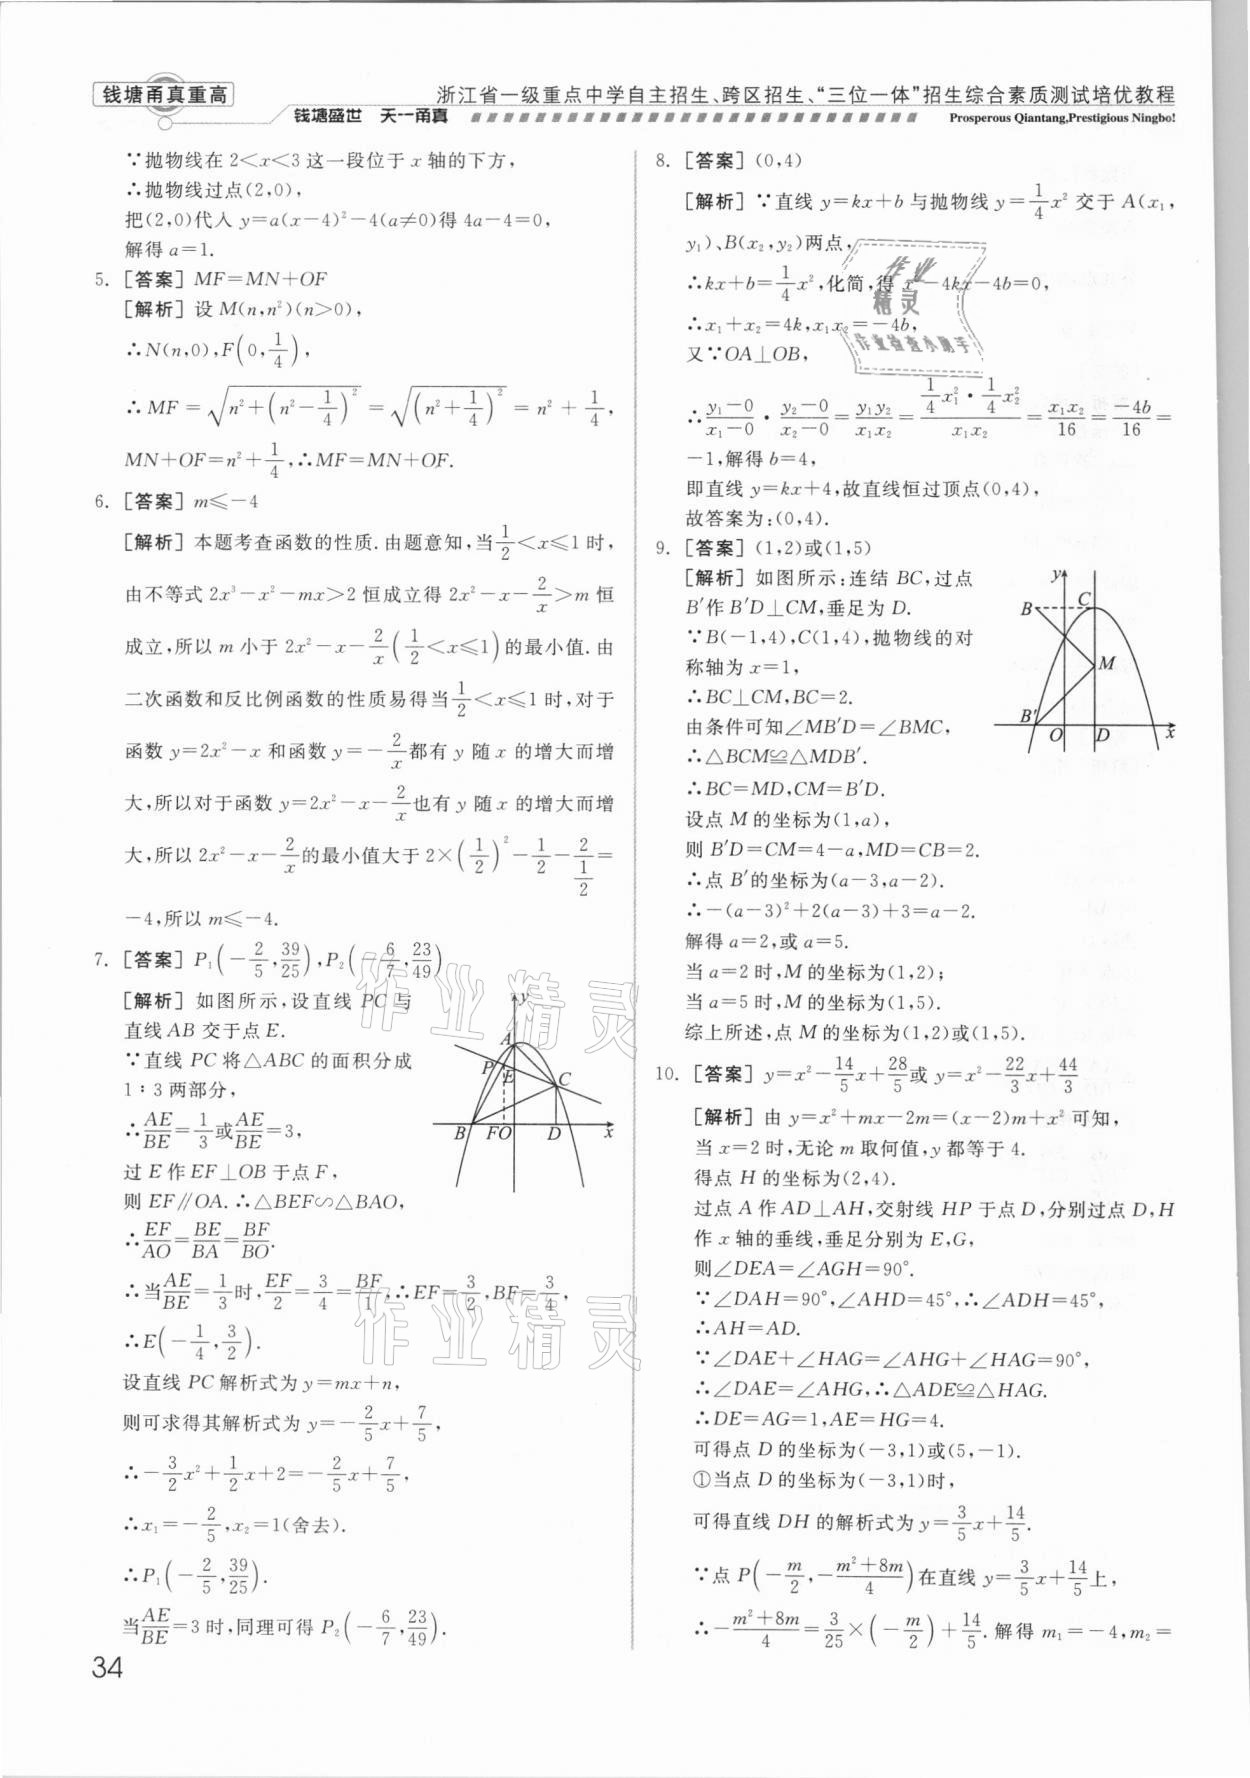 钱塘甬真重高
浙江省一级重点中学自主招生、跨区招生、“三位一体”招生综合素质测试培优教程
钱塘盛世 天一甬真
Prosperous Qiantang,Prestigious Ningbo!
∵抛物线在 2<x<3 这一段位于 x 轴的下方,
∴抛物线过点(2,0),
把(2,0)代入 y=a(x-4)²-4(a≠0)得 4a-4=0,
解得 a=1.
5. [答案] MF=MN+OF
[解析] 设 M(n,n²)(n>0),
∴N(n,0),F(0,1/4),
∴MF=√(n²+(n²-1/4)²)=√((n²+1/4)²)=n²+1/4,
MN+OF=n²+1/4,∴MF=MN+OF.
6. [答案] m≤-4
[解析] 本题考查函数的性质.由题意知,当1/2<x≤1 时,
由不等式 2x³-x²-mx>2 恒成立得 2x²-x-2/x>m 恒
成立,所以 m 小于 2x²-x-2/x(1/2<x≤1)的最小值.由
二次函数和反比例函数的性质易得当1/2<x≤1 时,对于
函数 y=2x²-x 和函数 y=-2/x都有 y 随 x 的增大而增
大,所以对于函数 y=2x²-x-2/x也有 y 随 x 的增大而增
大,所以 2x²-x-2/x的最小值大于 2×(1/2)²-1/2-2/(1/2)=
-4,所以 m≤-4.
7. [答案] P₁(-2/5,39/25),P₂(-6/7,23/49)
[解析] 如图所示,设直线 PC 与
直线 AB 交于点 E.
∵直线 PC 将△ABC 的面积分成
1∶3 两部分,
∴AE/BE=1/3或AE/BE=3,
过 E 作 EF⊥OB 于点 F,
则 EF∥OA.∴△BEF∽△BAO,
∴EF/AO=BE/BA=BF/BO.
∴当AE/BE=1/3时,EF/2=3/4=BF/1,∴EF=3/2,BF=3/4,
∴E(-1/4,3/2).
设直线 PC 解析式为 y=mx+n,
则可求得其解析式为 y=-2/5x+7/5,
∴-3/2x²+1/2x+2=-2/5x+7/5,
∴x₁=-2/5,x₂=1(舍去).
∴P₁(-2/5,39/25).
当AE/BE=3 时,同理可得 P₂(-6/7,23/49).
y
A
P
E
C
B
F
O
D
x
34
8. [答案] (0,4)
[解析] ∵直线 y=kx+b 与抛物线 y=1/4x² 交于 A(x₁,
y₁)、B(x₂,y₂)两点,
∴kx+b=1/4x²,化简,得 x²-4kx-4b=0,
∴x₁+x₂=4k,x₁x₂=-4b,
又∵OA⊥OB,
∴(y₁-0)/(x₁-0)·(y₂-0)/(x₂-0)=y₁y₂/x₁x₂=(1/4x₁²·1/4x₂²)/x₁x₂=x₁x₂/16=-4b/16=
-1,解得 b=4,
即直线 y=kx+4,故直线恒过顶点(0,4),
故答案为:(0,4).
9. [答案] (1,2)或(1,5)
[解析] 如图所示:连结 BC,过点
B′作 B′D⊥CM,垂足为 D.
∵B(-1,4),C(1,4),抛物线的对
称轴为 x=1,
∴BC⊥CM,BC=2.
由条件可知∠MB′D=∠BMC,
∴△BCM≌△MDB′.
∴BC=MD,CM=B′D.
设点 M 的坐标为(1,a),
则 B′D=CM=4-a,MD=CB=2.
∴点 B′的坐标为(a-3,a-2).
∴-(a-3)²+2(a-3)+3=a-2.
解得 a=2,或 a=5.
当 a=2 时,M 的坐标为(1,2);
当 a=5 时,M 的坐标为(1,5).
综上所述,点 M 的坐标为(1,2)或(1,5).
y
B
C
M
B′
O
D
x
10. [答案] y=x²-14/5x+28/5或 y=x²-22/3x+44/3
[解析] 由 y=x²+mx-2m=(x-2)m+x² 可知,
当 x=2 时,无论 m 取何值,y 都等于 4.
得点 H 的坐标为(2,4).
过点 A 作 AD⊥AH,交射线 HP 于点 D,分别过点 D,H
作 x 轴的垂线,垂足分别为 E,G,
则∠DEA=∠AGH=90°.
∵∠DAH=90°,∠AHD=45°,∴∠ADH=45°,
∴AH=AD.
∵∠DAE+∠HAG=∠AHG+∠HAG=90°,
∴∠DAE=∠AHG,∴△ADE≌△HAG.
∴DE=AG=1,AE=HG=4.
可得点 D 的坐标为(-3,1)或(5,-1).
①当点 D 的坐标为(-3,1)时,
可得直线 DH 的解析式为 y=3/5x+14/5.
∵点 P(-m/2,-(m²+8m)/4)在直线 y=3/5x+14/5上,
∴-(m²+8m)/4=3/25×(-m/2)+14/5.解得 m₁=-4,m₂=
作业
精灵
作业检查小助手
作业精灵
作业精灵